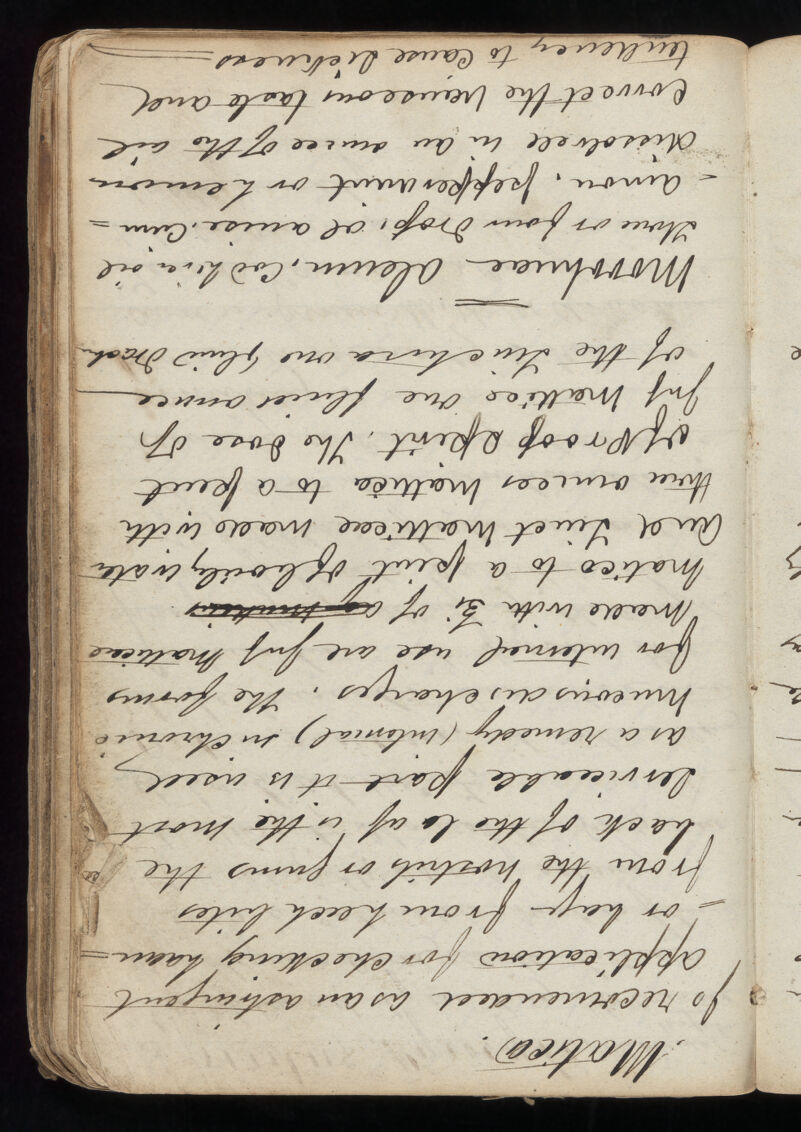 Matico.
Is recomended as an astringent
application for checking haem=
=or hage from leech bites
from the nostrils or gums the
back of the leaf is the most
serviceable part it is used
as a remedy (internal) in chronic
mucous discharges. The forms
for internal use are Inf Maticae
made with ℥i of
matico to a pint of boiling water
and Tinct Matticae made with
three ounces Mattica to a pint
of Proof Spirit. The dose of
Inf Mattico one fluid ounce
of the Tinctura one fluid Drach
Morrhuae Oleum, Cod liver oil
three or four Drops ol anise. Cinn=
=amon, peppermint or Lemon
dissolved in an ounce of the oil
correct the nauseous taste and
tendency to cause sickness